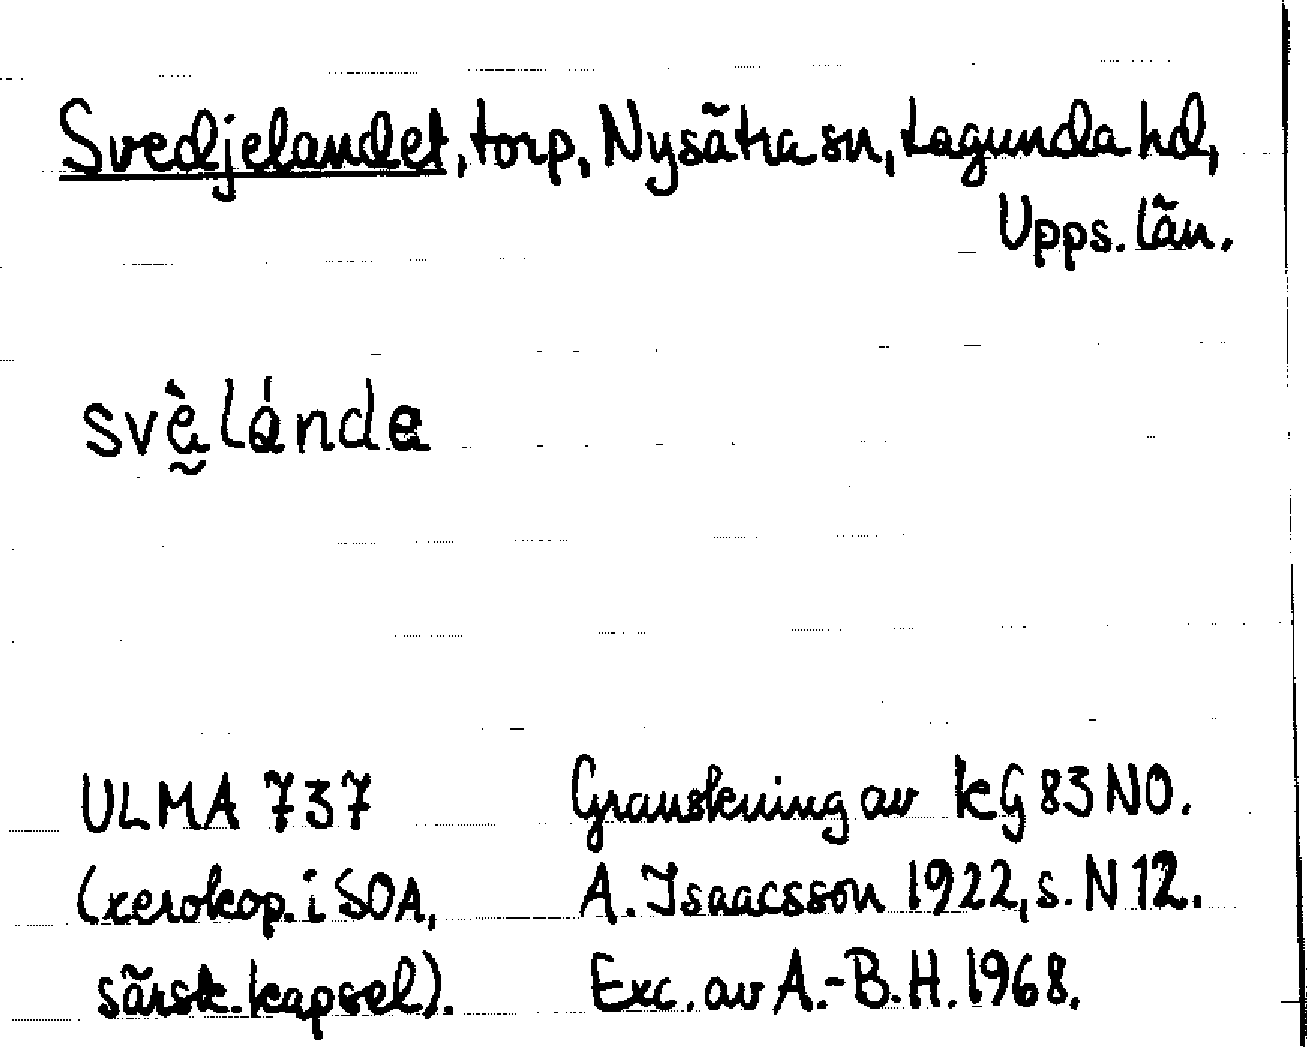 Svedjelandet, torp, Nysätra sn, Lagunda hd,
Upps. län.
svè̤lánda
ULMA 737
(xerokop. i SOA,
särsk. kapsel).
Granskning av kG 83 NO.
A. Isaacsson 1922, s. N 12.
Exc. av A.-B.H. 1968.